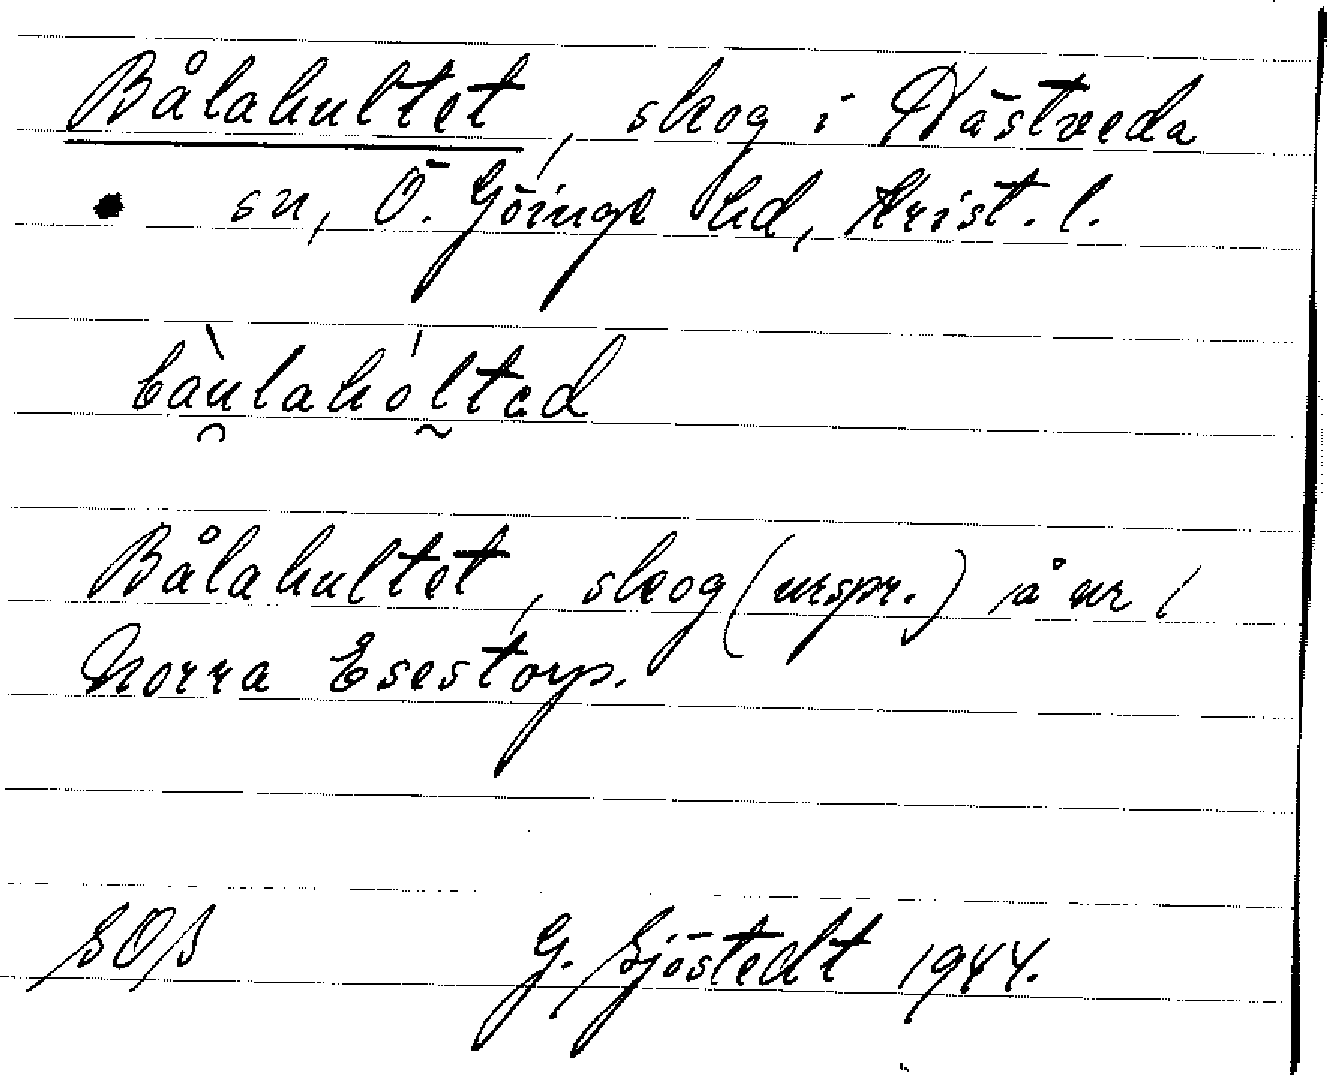 Bålahultet, skog i Nästveda
sn, Ö. Göinge hd, Krist. l.
bàu̯lahól̰təd
Bålahultet, skog (urspr.) å nr 1
Norra Esestorp.
SOS G. Sjöstedt 1944.